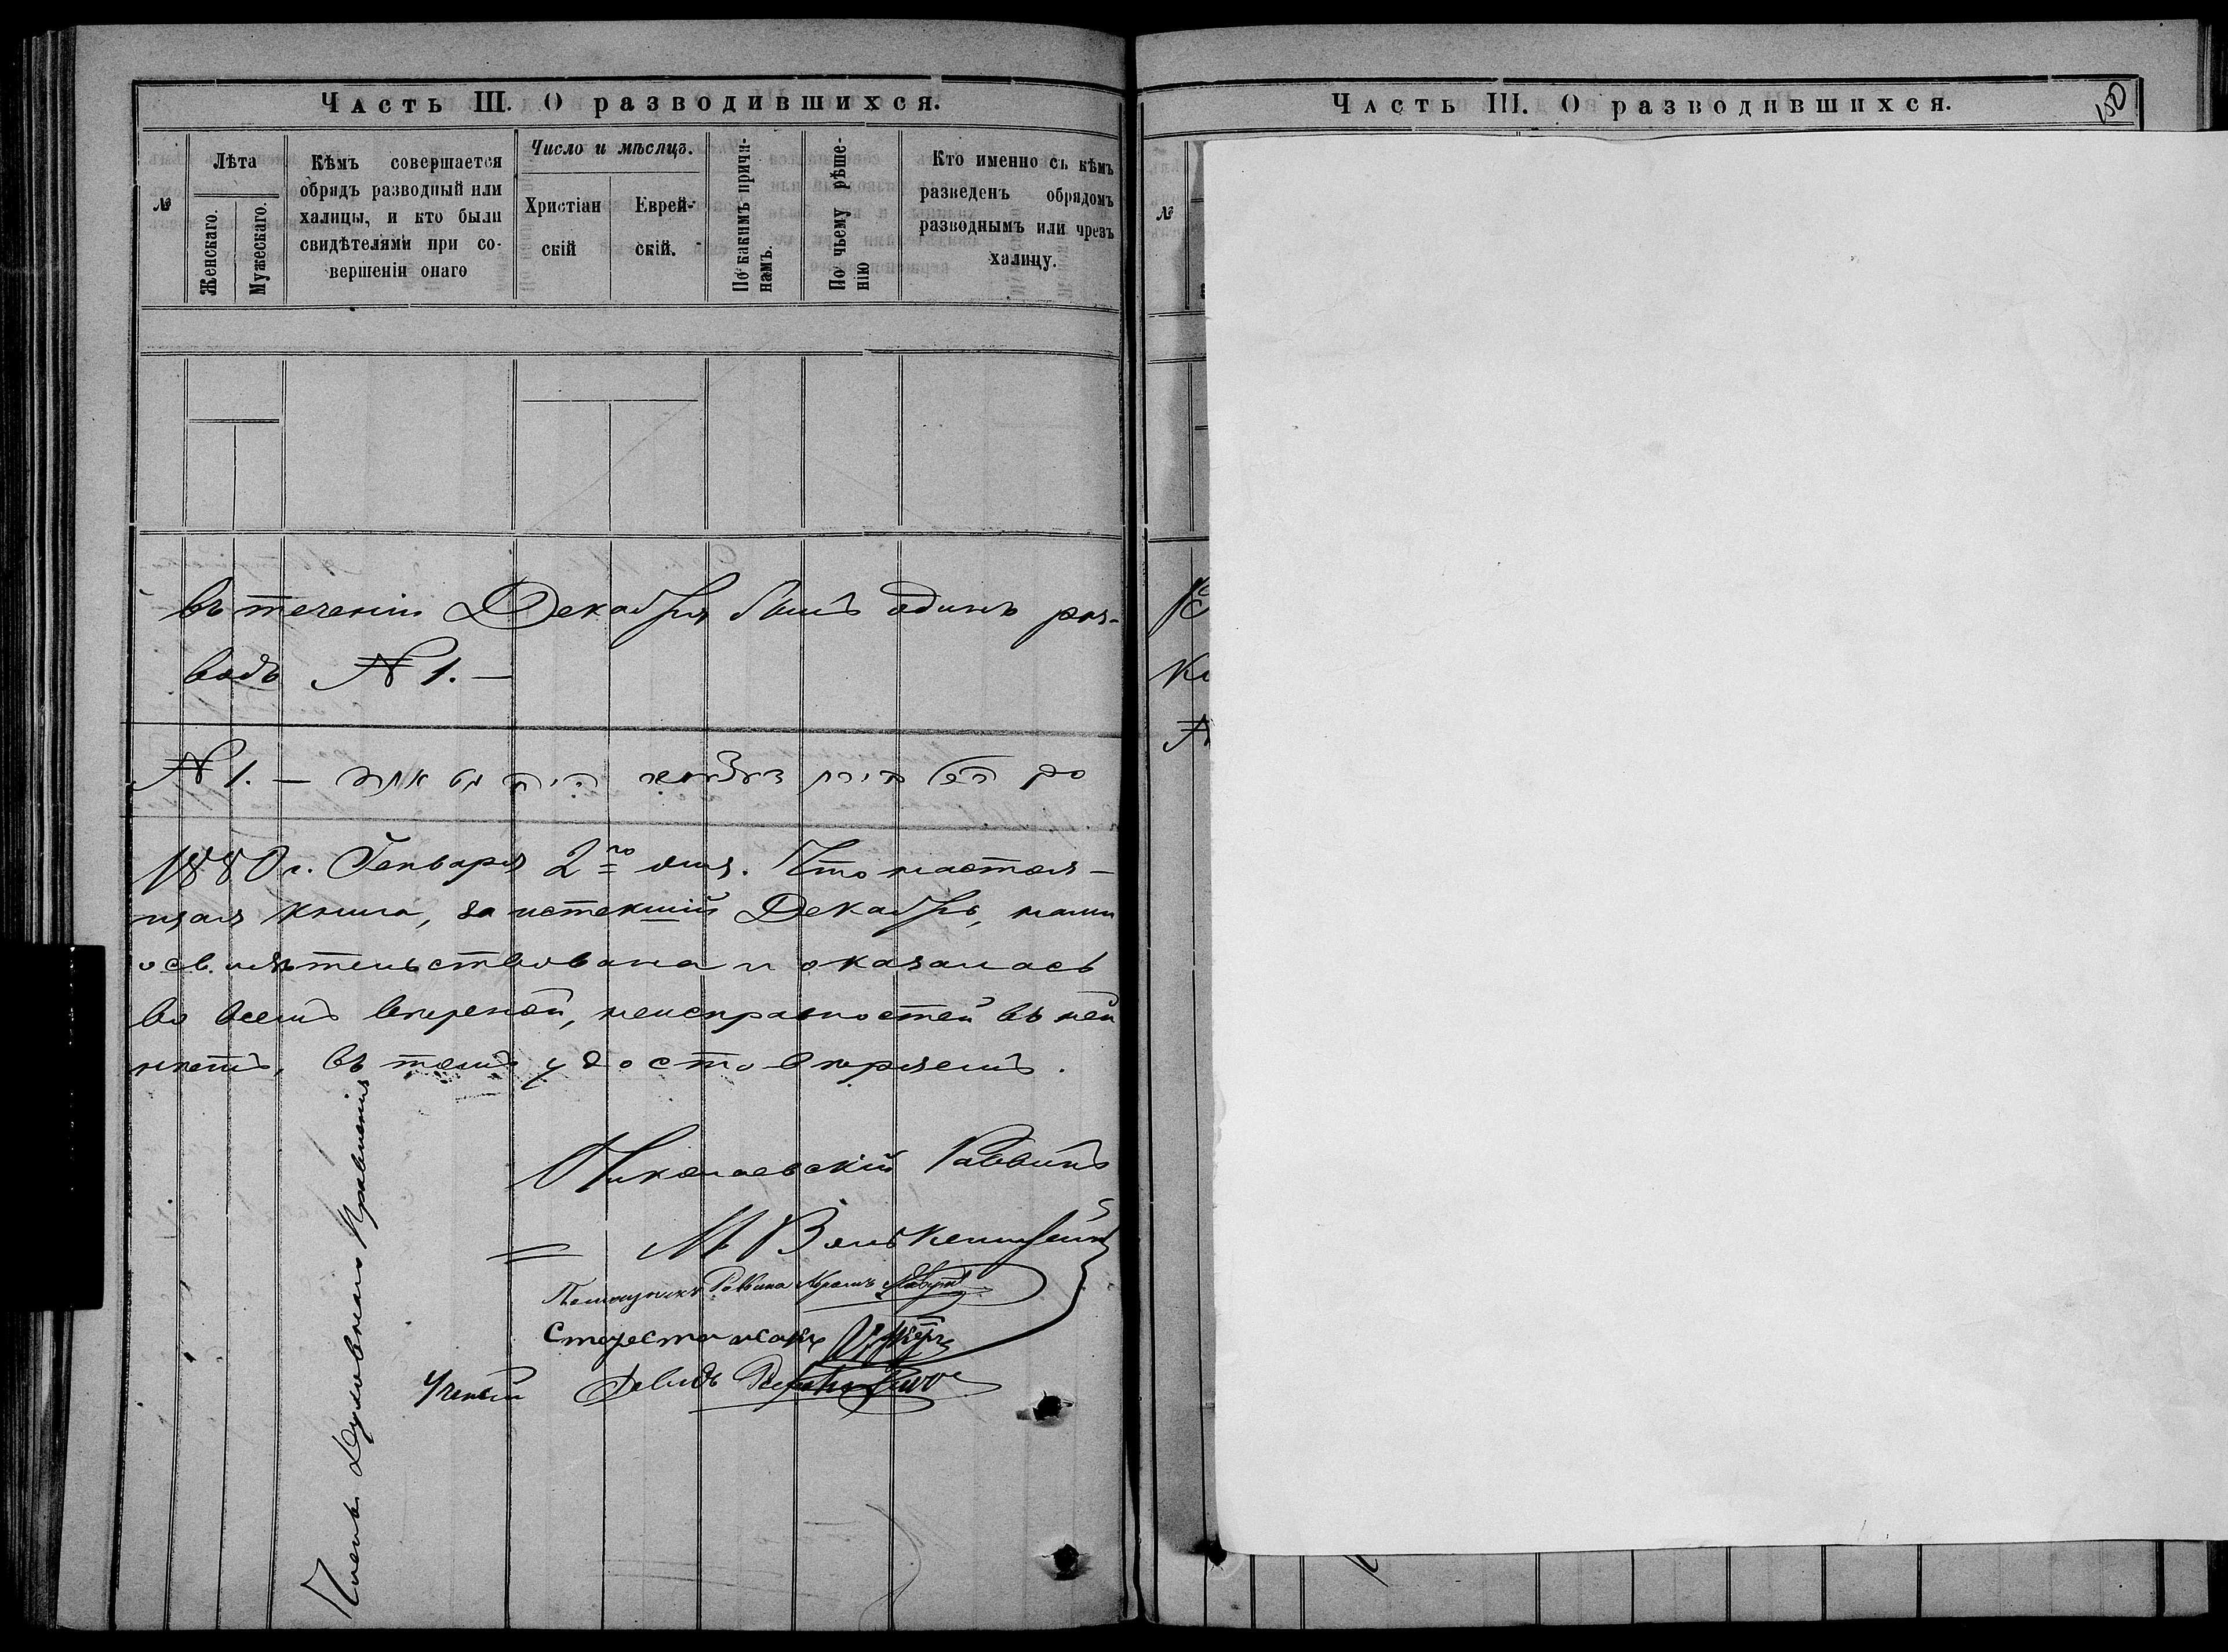 Часть III. О разводившихся.
№
Лѣта
Женскаго.
Мужескаго.
Кѣмъ совершается
обрядъ разводный или
халицы, и кто были
свидѣтелями при со-
вершеніи онаго
Число и мѣсяцъ.
Христіан
скій
Еврей-
скій.
По какимъ причи-
намъ.
По чьему рѣше-
нію
Кто именно съ кѣмъ
разведенъ обрядомъ
разводнымъ или чрезъ
халицу.
въ теченіи Декабря былъ одинъ раз-
водъ № 1. —
№ 1. —
1880 г. Генваря 2го дня. Что настоя-
щая книга, за истекшій Декабрь, нами
освидѣтельствована и оказалась
во всемъ вѣрной, неисправностей въ ней
нѣтъ, въ томъ удостовѣряемъ.
Николаевскій Раввинъ
М
Помощникъ Раввина Абрамъ
Староста Исакъ
Ученый Давидъ
Члены Духовнаго Правленія
Часть III. О разводившихся.
100
№